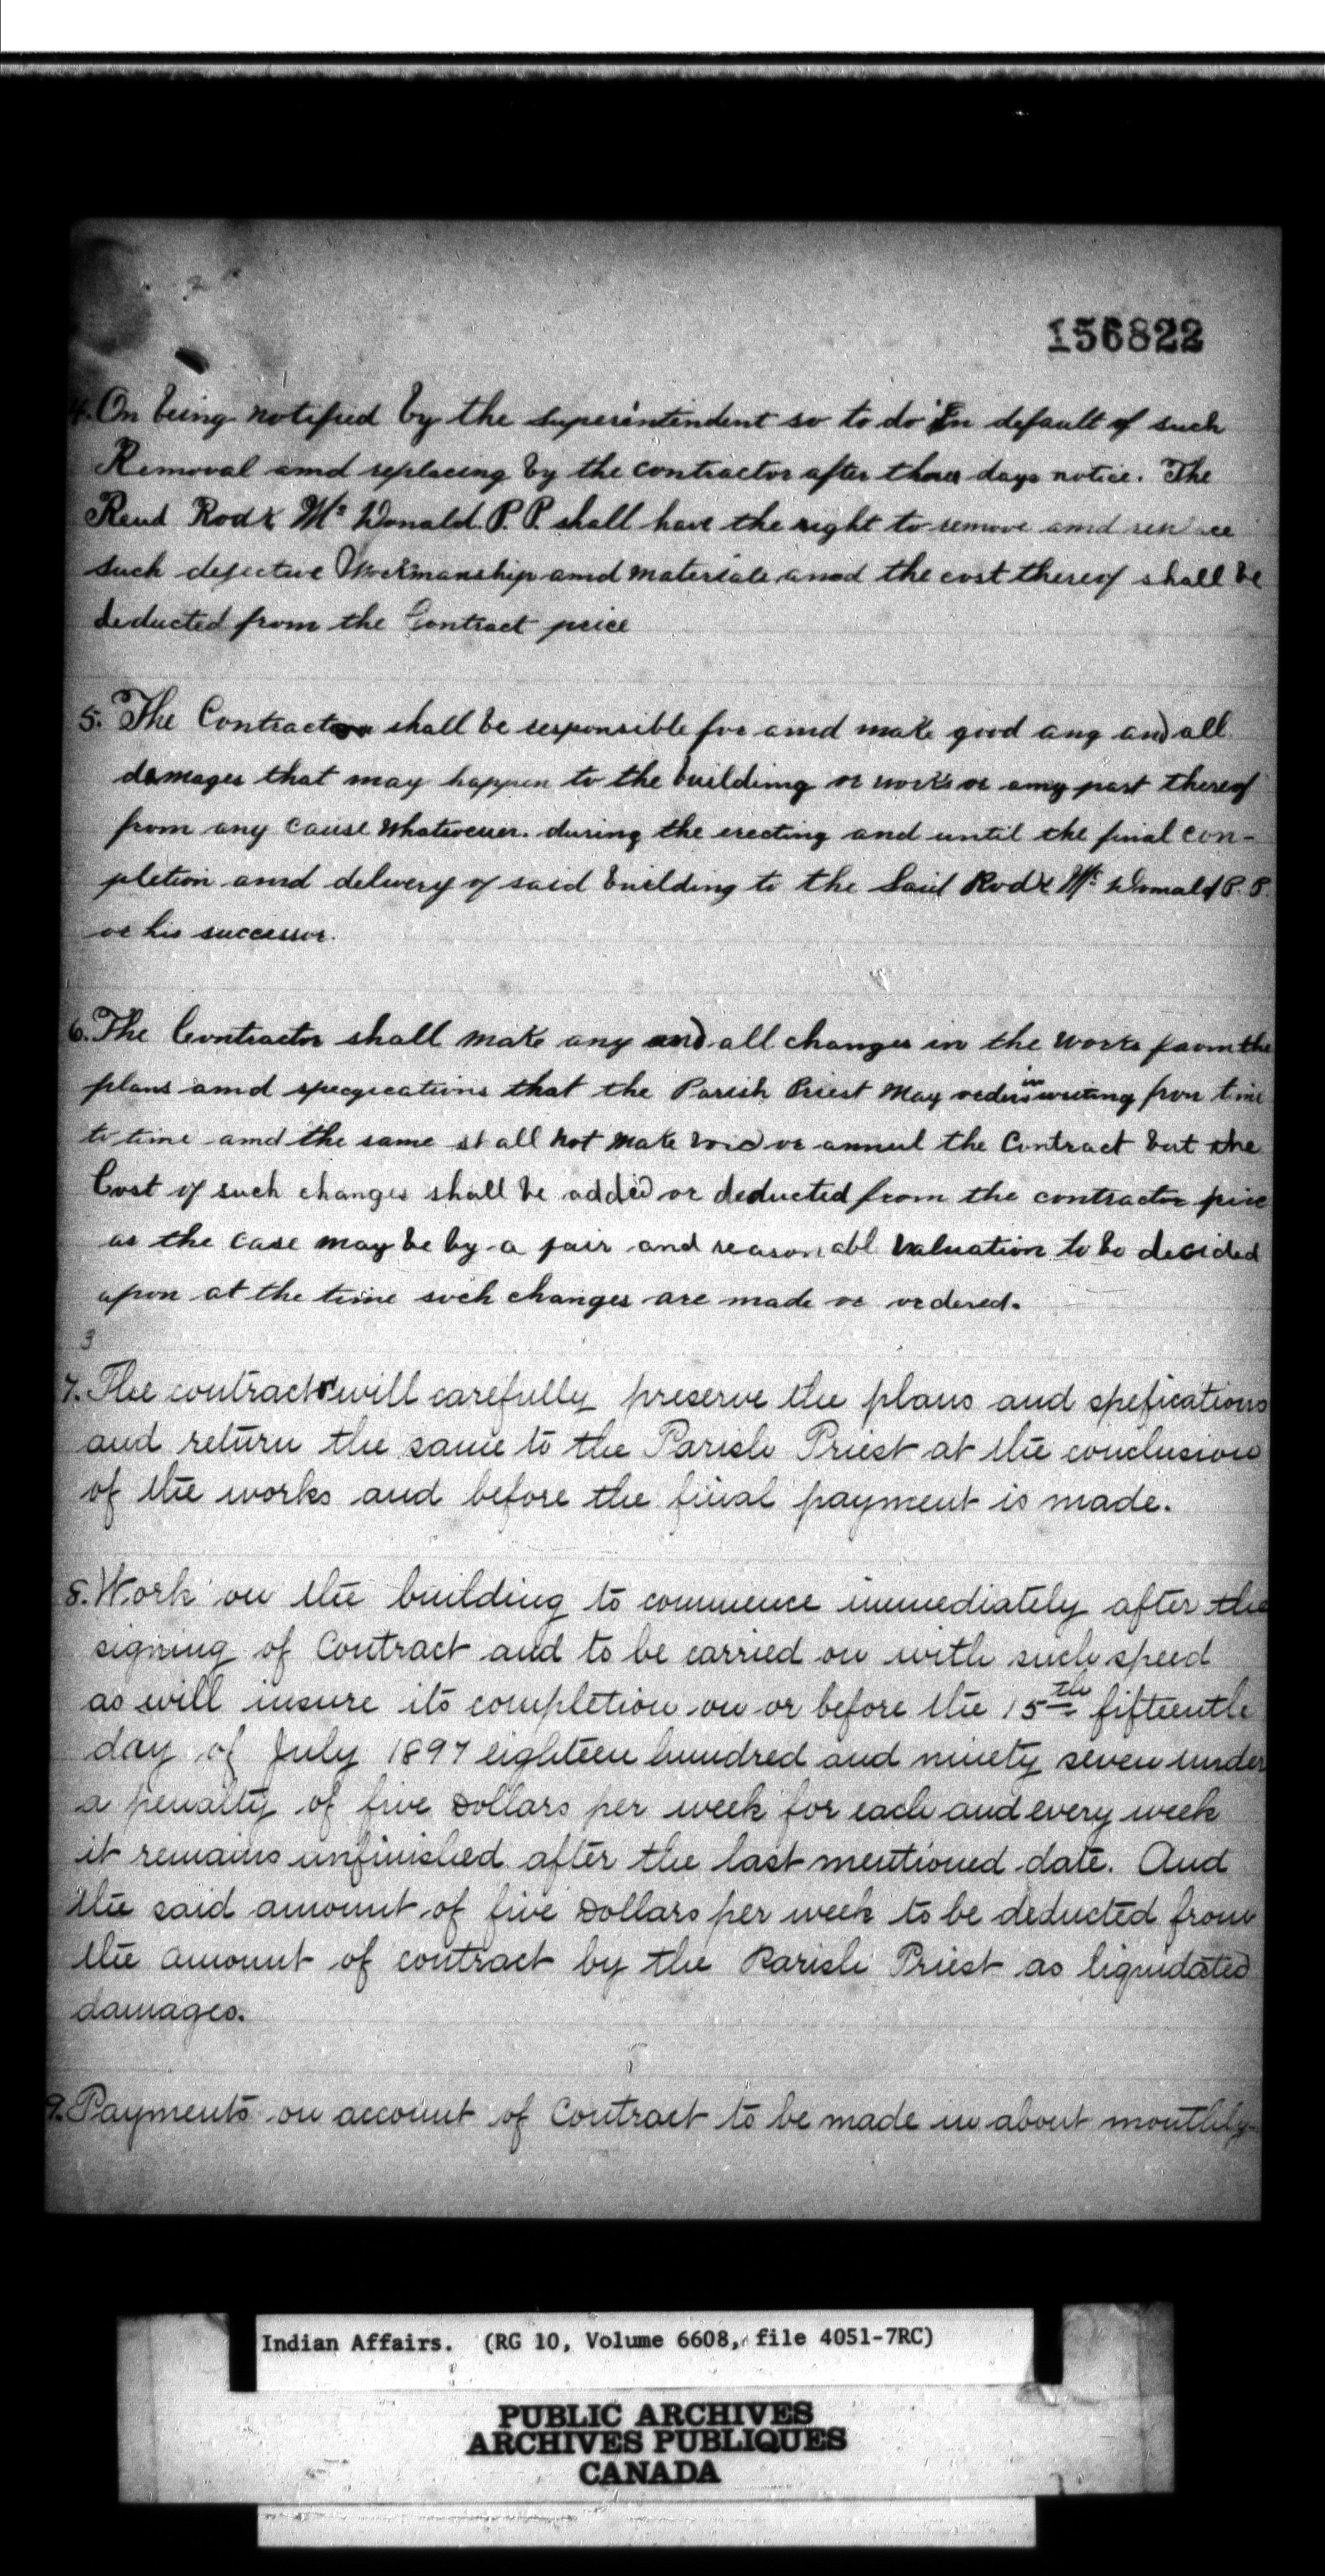 156822
4. On being notified by the superintendent so to do In default of such
Removal amd replacing by the contractor after three days notice. The
Revd Rodk Mc Donald. P. P. shall have the right to remove amd
such defective Workmanship amd materials and the cost thereof shall be
deducted from the Contract price
5. The Contractor shall be responsible for amd make good any and all
damages that may happen to the building or works or amy part thereof
from any cause whatsoever. during the erecting and until the final con-
pletion amd delivery of said building to the Said Rodk Mc Donald P. P.
or his successor.
6. The Contractor shall make any and all changes in the works from the
plans amd that the Parish Priest May order in writing from time
to time amd the same shall not make void or annul the Contract but the
Cost of such changes shall be added or deducted from the contractor price
as the case may be by a fair and reasonabl valuation to be decided
upon at the time such changes are made or ordered.
3
7. The contractor will carefully preserve the plans and spefications
and return the same to the Parish Priest at the conclusion
of the works and before the final payment is made.
8. Work on the building to commence immediately after the
signing of Contract and to be carried on with such speed
as will insure its completion on or before the 15th fifteenth
day of July 1897 eighteen hundred and ninety seven under
a penalty of five Dollars per week for each and every week
it remains unfinished after the last mentioned date. And
the said amount of five Dollars per week to be deducted from
the amount of contract by the Parish Priest as liquidated
damages.
9. Payments on account of Contract to be made in about monthly
Indian Affairs. (RG 10, Volume 6608, file 4051-7RC)
PUBLIC ARCHIVES
ARCHIVES PUBLIQUES
CANADA